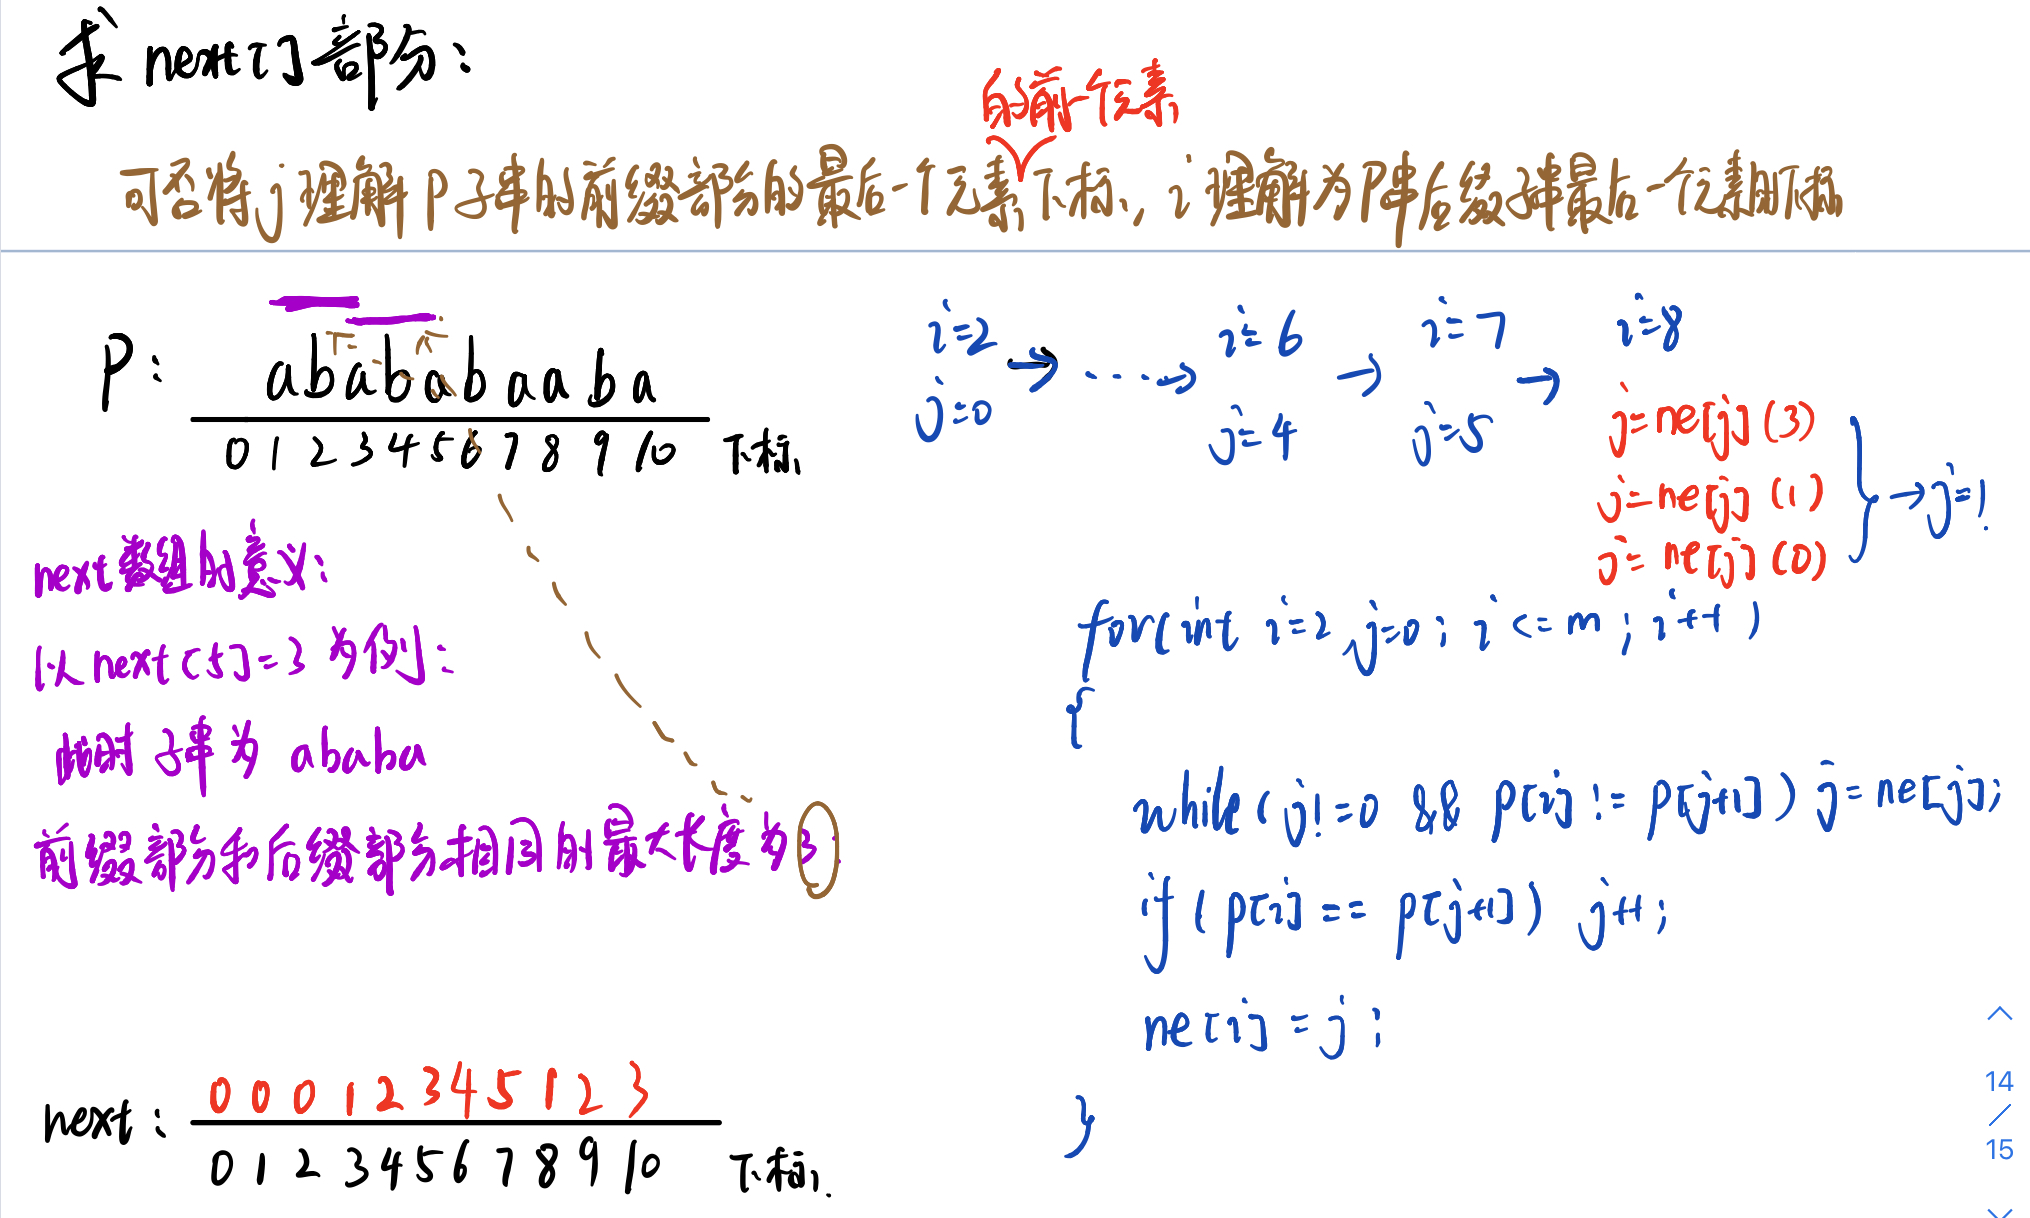 求 next[]部分：
的前一个元素
可否将j理解P子串的前缀部分的最后一个元素下标，i理解为P串后缀子串最后一个元素的下标
P： a b a b a b a a b a
0 1 2 3 4 5 6 7 8 9 10 下标
next数组的意义：
以next[5]=3 为例：
此时 子串为 ababa
前缀部分和后缀部分相同的最大长度为3
next： 0 0 0 1 2 3 4 5 1 2 3
0 1 2 3 4 5 6 7 8 9 10 下标
i=2 → ····→ i=6 → i=7 → i=8
j=0 j=4 j=5 j=ne[j] (3)
j=ne[j] (1) → j=1
j=ne[j] (0)
for(int i=2, j=0; i<=m; i++)
{
while(j!=0 && p[i] != p[j+1]) j=ne[j];
if (p[i] == p[j+1]) j++;
ne[i] = j;
}
14
/
15